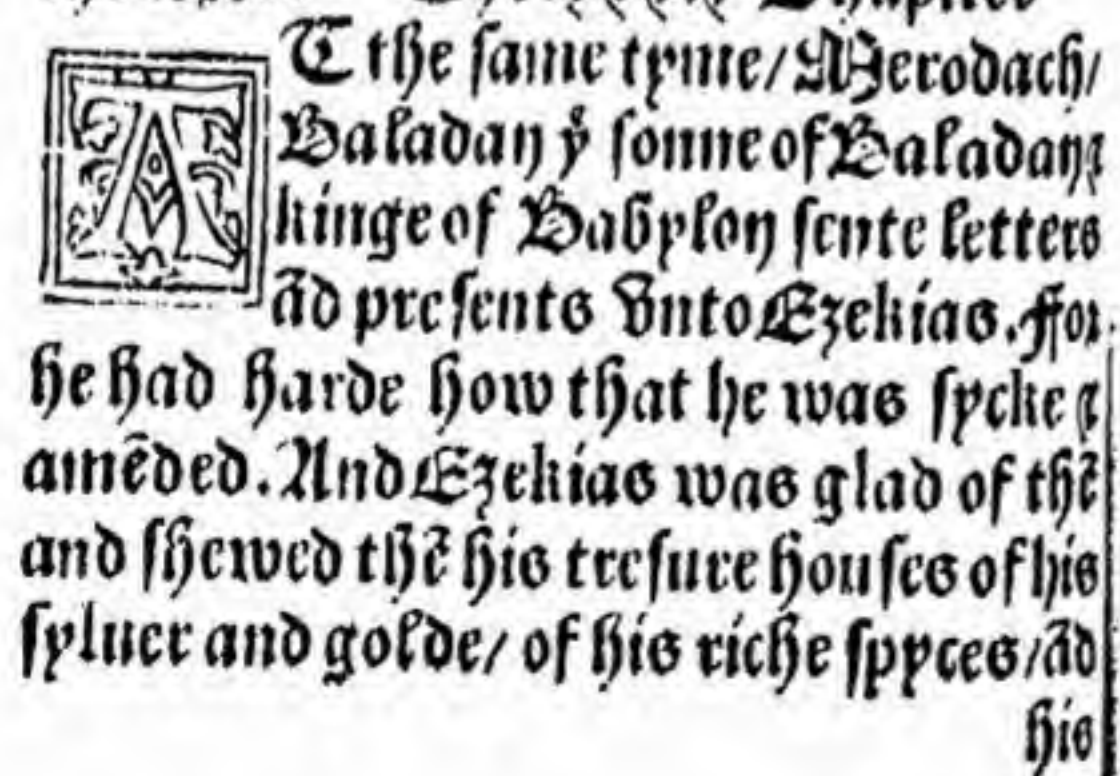 AT the ſame tyme/ Merodach/
Baladan yͤ ſonne of Baladan ⁊
kinge of Babylon ſente letters
ād preſents vnto Ezekias. For
he had harde how that he was ſycke ⁊
amēded. And Ezekias was glad of thē
and ſhewed thē his treſure houſes of his
ſyluer and golde/ of his riche ſpyces/ ād
his